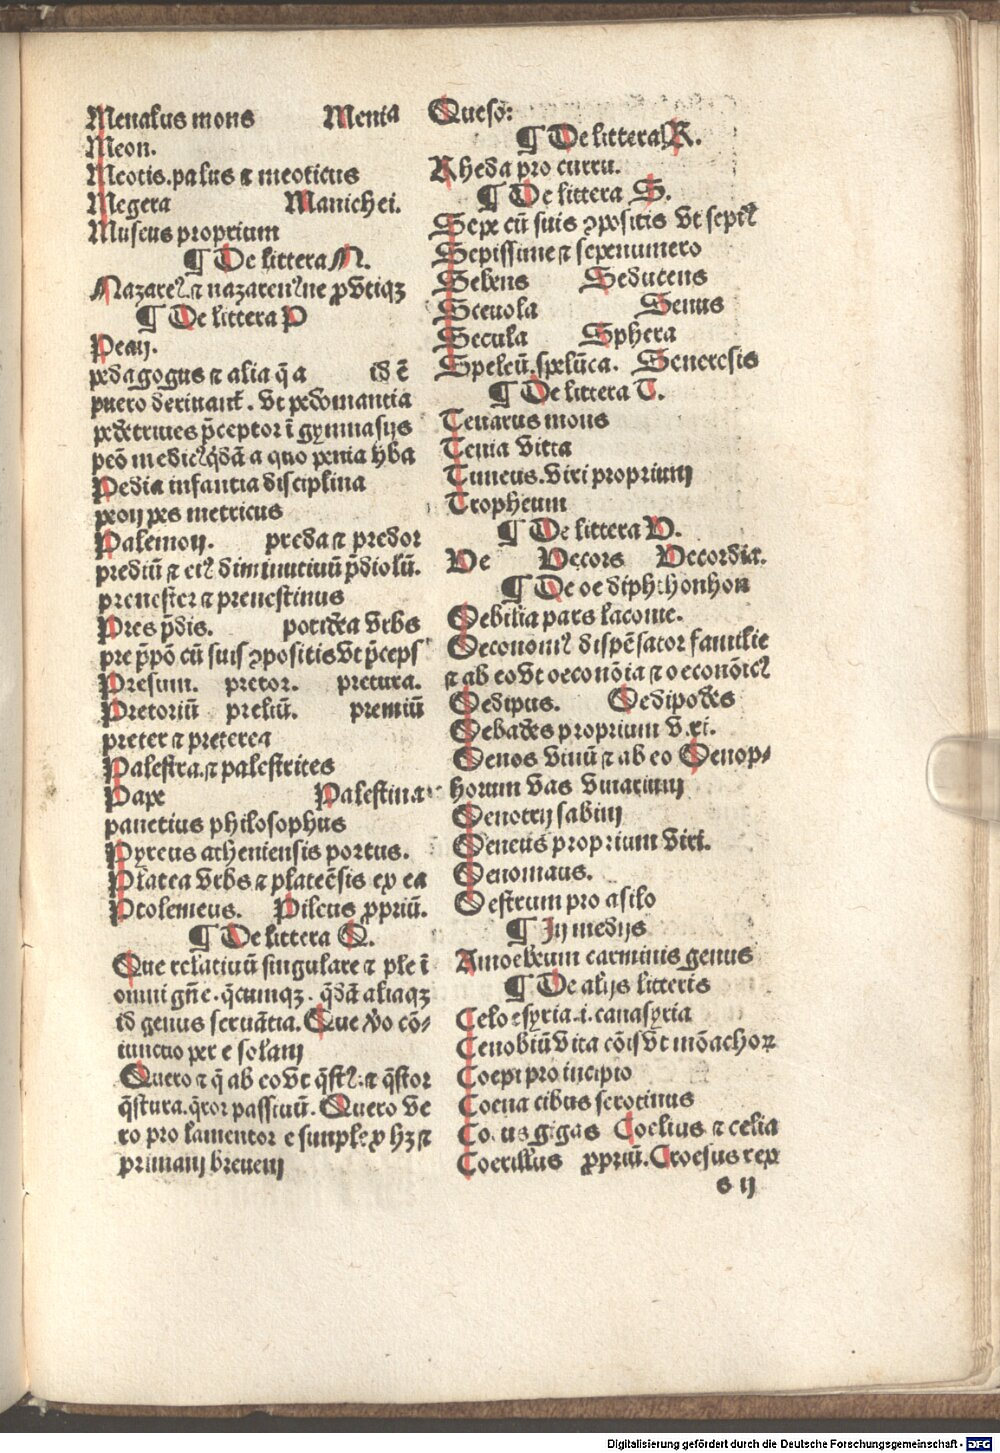 Menalus mons Menia
Meon.
Meotis.palus ⁊ meoticus
Megera Manichei.
Museus proprium
¶ De littera N.
Nazareꝰ.⁊ nazarenꝰne ꝓ vtiqꝫ
¶ De littera P
Pean.
pedagogus ⁊ alia q̄ a id ē
puero deriuant̄. vt pedomantia
pedetriues p̄ceptor ī gymnasijs
peō medicꝰ qͥdā a quo penia hͥba
Pedia infantia disciplina
peon pes metricus
Palemon. preda ⁊ predor
prediū ⁊ eiꝰ diminutiuū p̄diolū.
prenester ⁊ prenestinus
Pres p̄dis. potidea vrbs
pre p̄pō cū suis ꝯpositis vt p̄ceps
Presum. pretor. pretura.
Pretoriū preliū. premiū
preter ⁊ preterea
Palestra.⁊ palestrites
Pape Palestina
panetius philosophus
Pyreus atheniensis portus.
Platea vrbs ⁊ plateēsis ex ea
Ptolemeus. Pileus ꝓpriū.
¶ De littera Q.
Que relatiuū singulare ⁊ ple ī
omni gn̄e. q̄cumqꝫ. q̄dā aliaqꝫ
id genus seruātia. Que ꝟo cō⸗
iunctio per e solam
Quero ⁊ q̄ ab eo vt q̄stꝰ.⁊ q̄stor
q̄stura.q̄ror passiuū. Quero ve
ro pro lamentor e simplex hꝫ ⁊
primam breuem
Quesō:
¶ De littera R.
Rheda pro curru.
¶ De littera S.
Sepe cū suis ꝯpositis vt sepiꝰ
Sepissime ⁊ sepenumero
Sebens Seducens
Sceuola Senus
Secula Sphera
Speleū.spelūca. Seneresis
¶ De littera T.
Tenarus mons
Tenia vitta
Tuneus.viri proprium
Tropheum
¶ De littera V.
Ve Vecors Vecordia.
¶ De oe diphthonhon
Oebilia pars laconie.
Oeconomꝰ dispēsator familie
⁊ ab eo vt oeconōia ⁊ oeconōicꝰ
Oedipus. Oedipodes
Oebades proprium v.ri.
Oenos vinū ⁊ ab eo Oenop⸗
horum vas vinarium
Oenotrij sabini
Oeneus proprium viri.
Oenomaus.
Oestrum pro asilo
¶ In medijs
Amoebeum carminis genus
¶ De alijs litteris
Celoesyria.i.canasyria
Cenobiū vita cōis vt mōachoꝝ
Coepi pro incipio
Coena cibus serotinus
Co.us gigas Coelius ⁊ celia
Coerillus ꝓpriū. Croesus rex
s ij
Digitalisierung gefördert durch die Deutsche Forschungsgemeinschaft - DFG